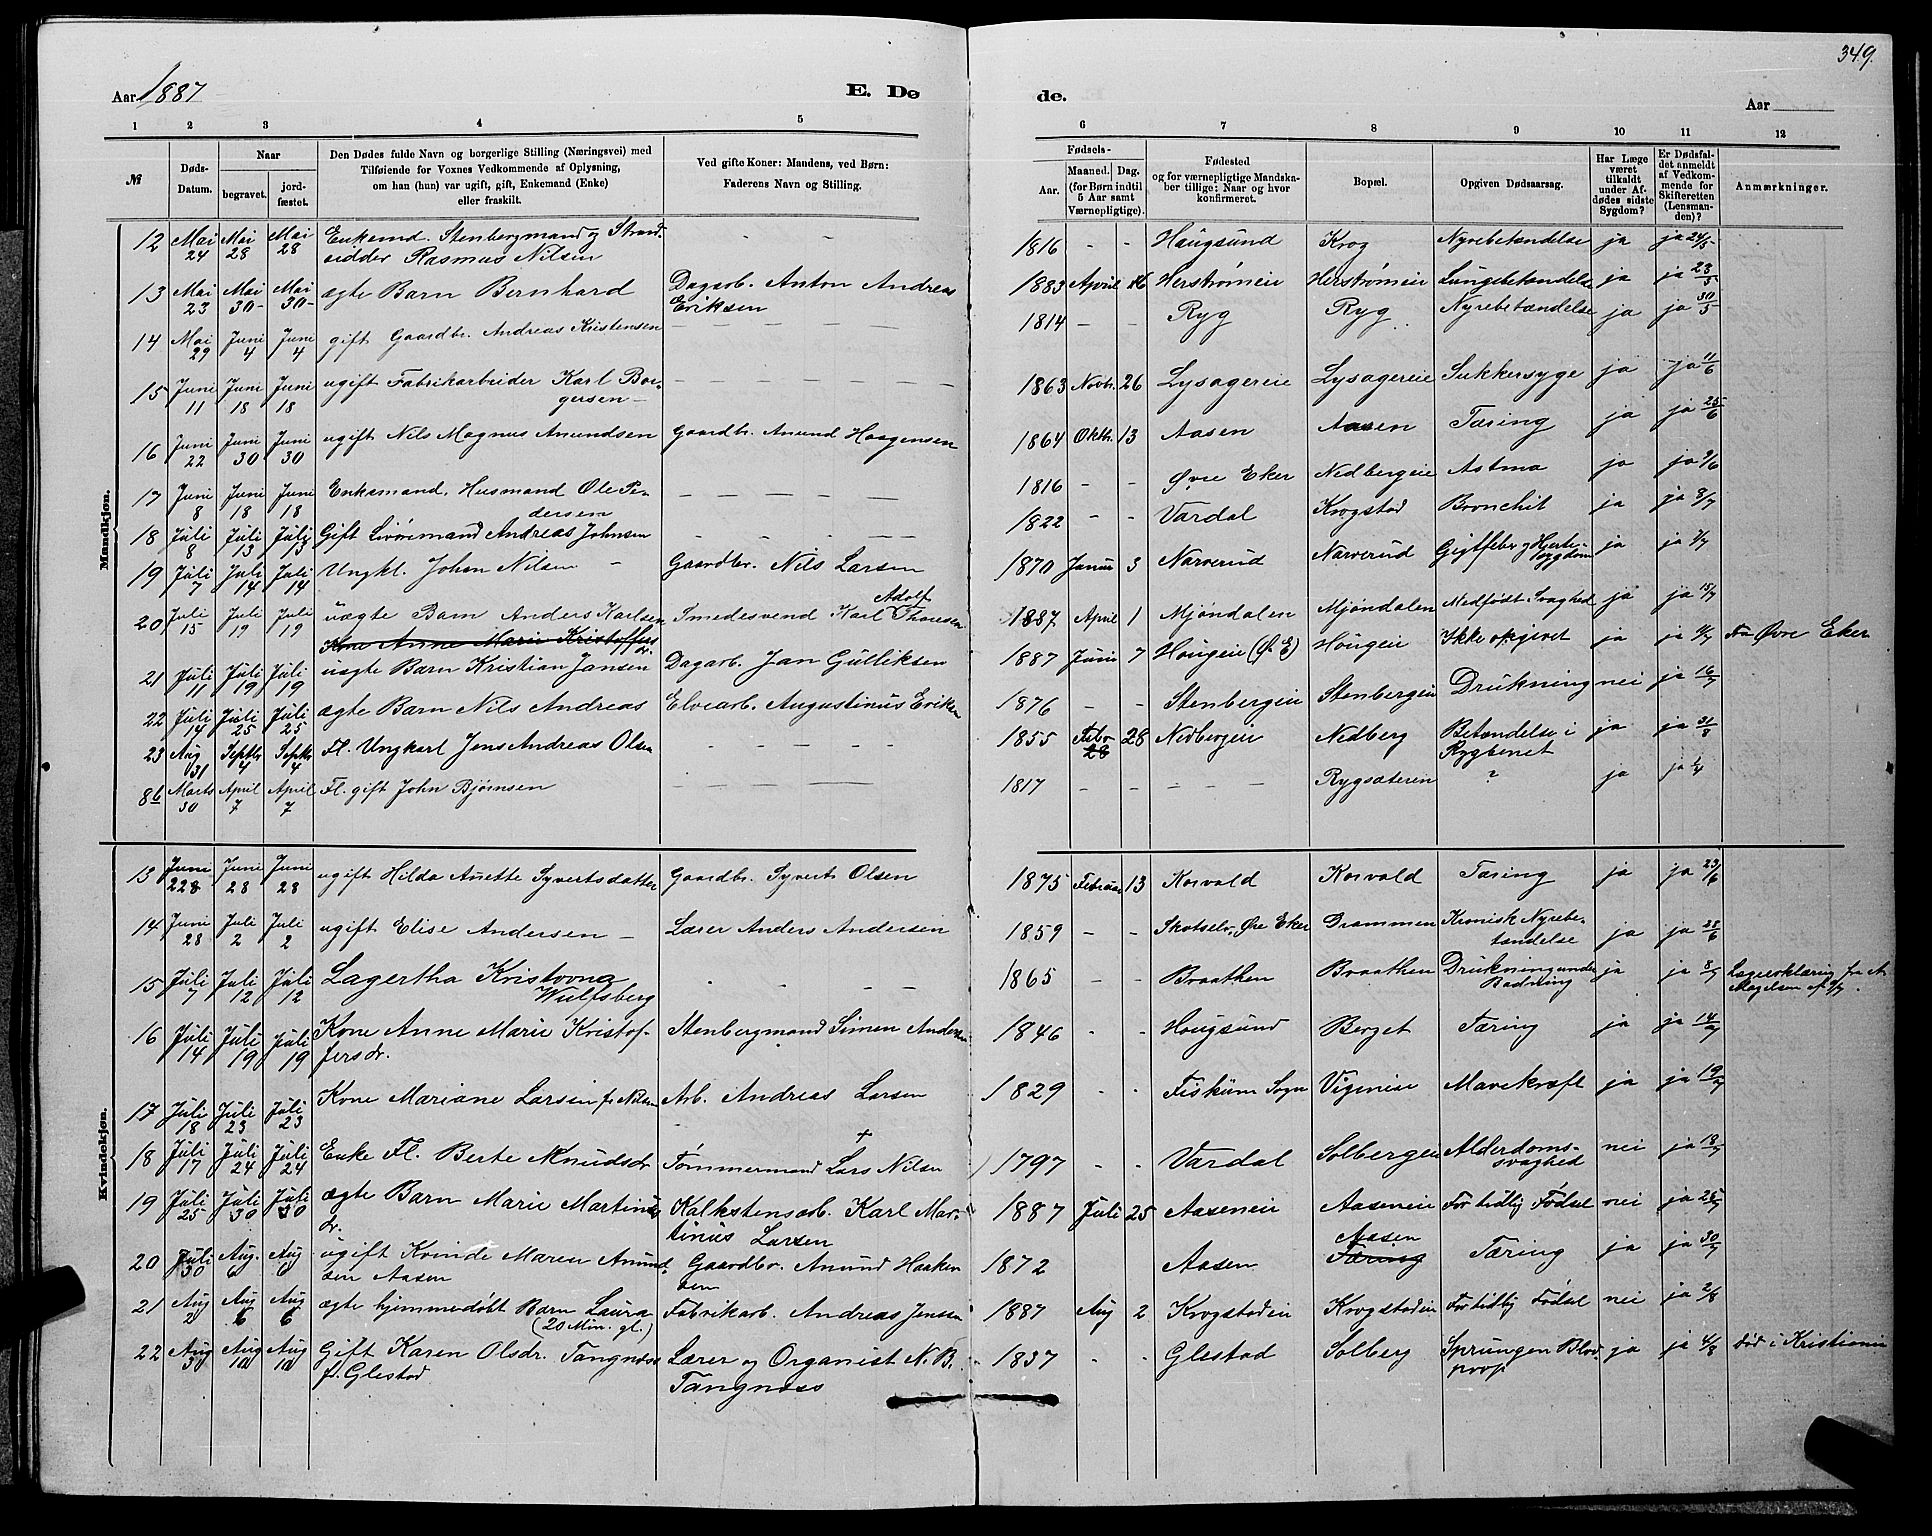 349.
Aar 1887
E. Dø
de.
Aar
1 2 3 4 5 6 7 8 9 10 11 12
№
Døds-Datum.
Naar
begravet.
jord-fæstet.
Den Dødes fulde Navn og borgerlige Stilling (Næringsvei) med
Tilføiende for Voxnes Vedkommende af Oplysning,
om han (hun) var ugift, gift, Enkemand (Enke)
eller fraskilt.
Ved gifte Koner: Mandens, ved Børn:
Faderens Navn og Stilling.
Fødsels-
Aar.
Maaned. Dag.
(for Børn indtil
5 Aar samt
Værnepligtige).
Fødested
og for værnepligtige Mandska-
ber tillige: Naar og hvor
konfirmeret.
Bopæl.
Opgiven Dødsaarsag.
Har Læge
været
tilkaldt
under Af-
dødes sidste
Sygdom?
Er Dødsfal-
det anmeldt
af Vedkom-
mende for
Skifteretten
(Lensman-
den)?
Anmærkninger.
Mandkjøn.
12 Mai 24 Mai 28 Mai 28 Enkemd. Stenbergmand og Strand-
sidder Rasmus Nilsen - - 1816 - - Haugsund Krog Nyrebetændelse ja ja 24/5
13 Mai 23 Mai 30 Mai 30 ægte Barn Bernhard Dagarb. Anton Andreas
Eriksen 1883 April 16 Herstrømeie Herstrømeie Lungebetændelse ja ja 23/5
14 Mai 29 Juni 4 Juni 4 gift Gaardbr. Andreas Kristensen - - - 1814 - - Ryg Ryg Nyrebetændelse ja ja 30/5
15 Juni 11 Juni 18 Juni 18 ugift Fabrikarbeider Karl Bor-
gersen - - - 1863 Novbr. 26 Lysagereie Lysagereie Sukkersyge ja ja 11/6
16 Juni 22 Juni 30 Juni 30 ugift Nils Magnus Amundsen Gaardbr. Anund Haagensen 1864 Oktbr. 13 Aasen Aasen Tæring ja ja 25/6
17 Juni 8 Juni 18 Juni 18 Enkemand. Husmand Ole Pe-
dersen - - - 1816 - - Øvre Eker Nedbergeie Astma ja ja 9/6
18 Juli 8 Juli 13 Juli 13 Gift Livøremand Andreas Johnsen - - - 1822 - - Vardal Krogstad Bronchit ja ja 8/7
19 Juli 7 Juli 14 Juli 14 Ungkl. Johan Nilsen - Gaardbr. Nils Larsen 1870 Januar 3 Narverud Narverud Gigtfeber og Hjerte-
sygdom ja ja 7/7
20 Juli 15 Juli 19 Juli 19 uægte Barn Anders Karlsen Smedesvend Karl Adolf Thoresen 1887 April 1 Mjøndalen Mjøndalen Medfødt Svaghed ja ja 15/7
Kone Anne Marie Kristoffersdr.
21 Juli 11 Juli 19 Juli 19 uægte Barn Kristian Jansen Dagarb. Jan Gulliksen 1887 Juni 7 Hougeie (Ø. E) Hougeie Ikke opgivet ja ja 11/7 Fra Øvre Eker
22 Juli 14 Juli 25 Juli 25 ægte Barn Nils Andreas Elvearb. Augustinus Eriksen 1876 - - Stenbergeie Stenbergeie Drukning nei ja 16/7
23 Aug 31 Septbr 4 Septbr 4 Fl. Ungkarl Jens Andreas Olsen - - - 1855 Febr 28 28 Nedbergeie Nedberg Betændelse i
Rygbenet ja ja 31/8
8b Marts 30 April 7 April 7 Fl. gift John Bjørnsen - - - 1817 - - - - - Rygsæteren ? ja ja 1/4
Kvindekjøn.
13 Juni 228 Juni 28 Juni 28 ugift Hilda Anette Syvertsdatter Gaardbr. Syvert Olsen 1875 Februar 13 Korvald Korvald Tæring ja ja 23/6
14 Juni 28 Juli 2 Juli 2 ugift Elise Andersen - Lærer Anders Andersen 1859 - - Skotselv, Øvre Eker Drammen Kronisk Nyrebe-
tændelse ja ja 28/6
15 Juli 7 Juli 12 Juli 12 Lagertha Kristovna
Wulfsberg - - - 1865 - - Braathen Braathen Drukning under
Badning ja ja 8/7 Lægeerklæring fra A.
Magelsen af 9/7.
16 Juli 14 Juli 19 Juli 19 Kone Anne Marie Kristof-
fersdr. Stenbergmand Simen Andersen 1846 - - Hougsund Berget Tæring ja ja 14/7
17 Juli 18 Juli 23 Juli 23 Kone Mariane Larsen f. Nilsen Arb. Andreas Larsen 1829 - - Fiskum Sogn Vigeneie Mavekræft ja ja 19/7
18 Juli 17 Juli 24 Juli 24 Enke Fl. Berte Knudsdr Tømmermand Lars Nilsen † 1797 - - Vardal Solbergeie Alderdoms-
svaghed nei ja 18/7
19 Juli 25 Juli 30 Juli 30 ægte Barn Marie Martinus
dr. Kalkstensarb. Karl Mar-
tinius Larsen 1887 Juli 25 Aaseneie Aaseneie For tidlig Fødsel nei ja 25/7
20 Juli 30 Aug. 6 Aug 6 ugift Kvinde Maren Anund-
sen Aasen Gaardbr. Anund Haaken
sen 1872 Aasen Aasen Tæring Tæring ja ja 30/7
21 Aug 2 Aug 6 Aug 6 ægte hjemmedøbt Barn Laura
(20 Min. gl.) Fabrikarb. Andreas Jensen 1887 Aug 2 Krogstadeie Krogstadeie For tidlig Fødsel nei ja 2/8
22 Aug 3 Aug 10 Aug 10 Gift Karen Olsdr. Tangnæss
f. Glestad Lærer og Organist N. B.
Tangnæss 1837 - - Glestad Solberg Sprungen Blod
prop ja ja 4/8 død i Kristiania